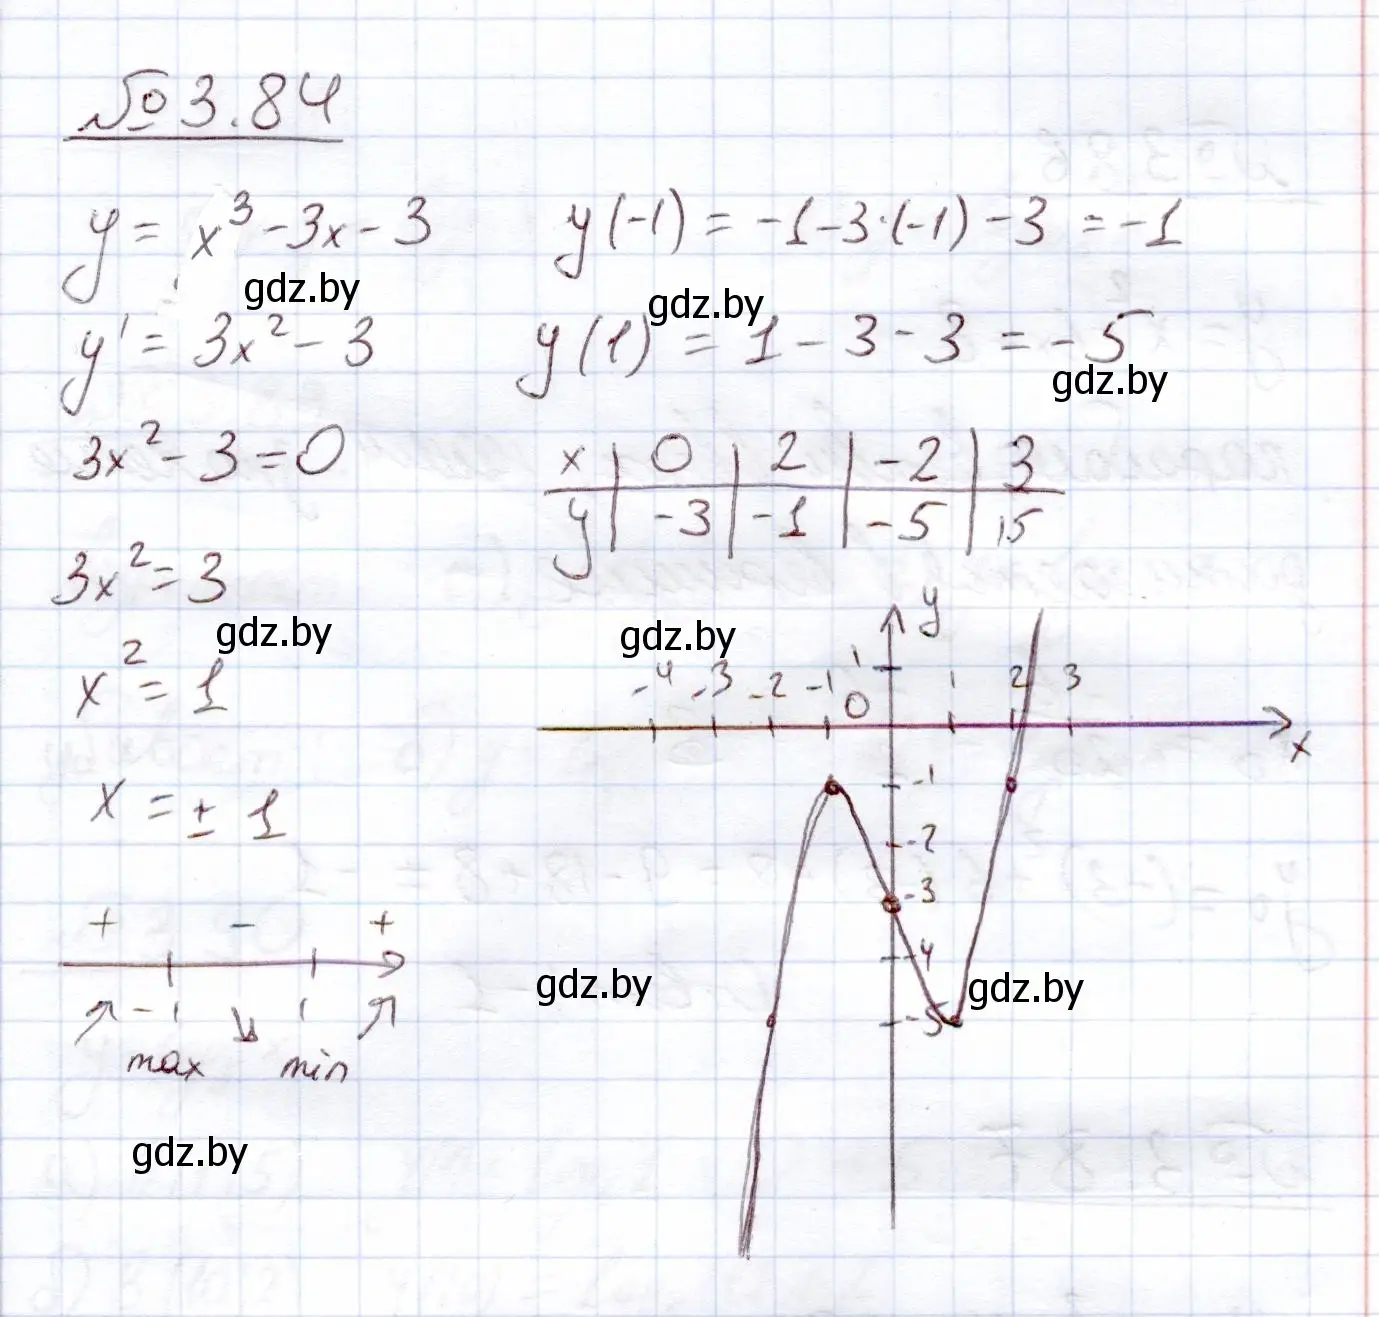 № 3.84
y = x³ - 3x - 3
gdz.by
y' = 3x² - 3
3x² - 3 = 0
3x² = 3
gdz.by
x² = 1
x = ± 1
+ - +
↗ -1 ↘ 1 ↗
max min
gdz.by
y(-1) = -1 - 3·(-1) - 3 = -1
gdz.by
y(1) = 1 - 3 - 3 = -5
gdz.by
x | 0 | 2 | -2 | 3
y | -3 | -1 | -5 | 15
gdz.by
y
1
-4 -3 -2 -1 0 1 2 3
x
-1
-2
-3
-4
gdz.by gdz.by
-5